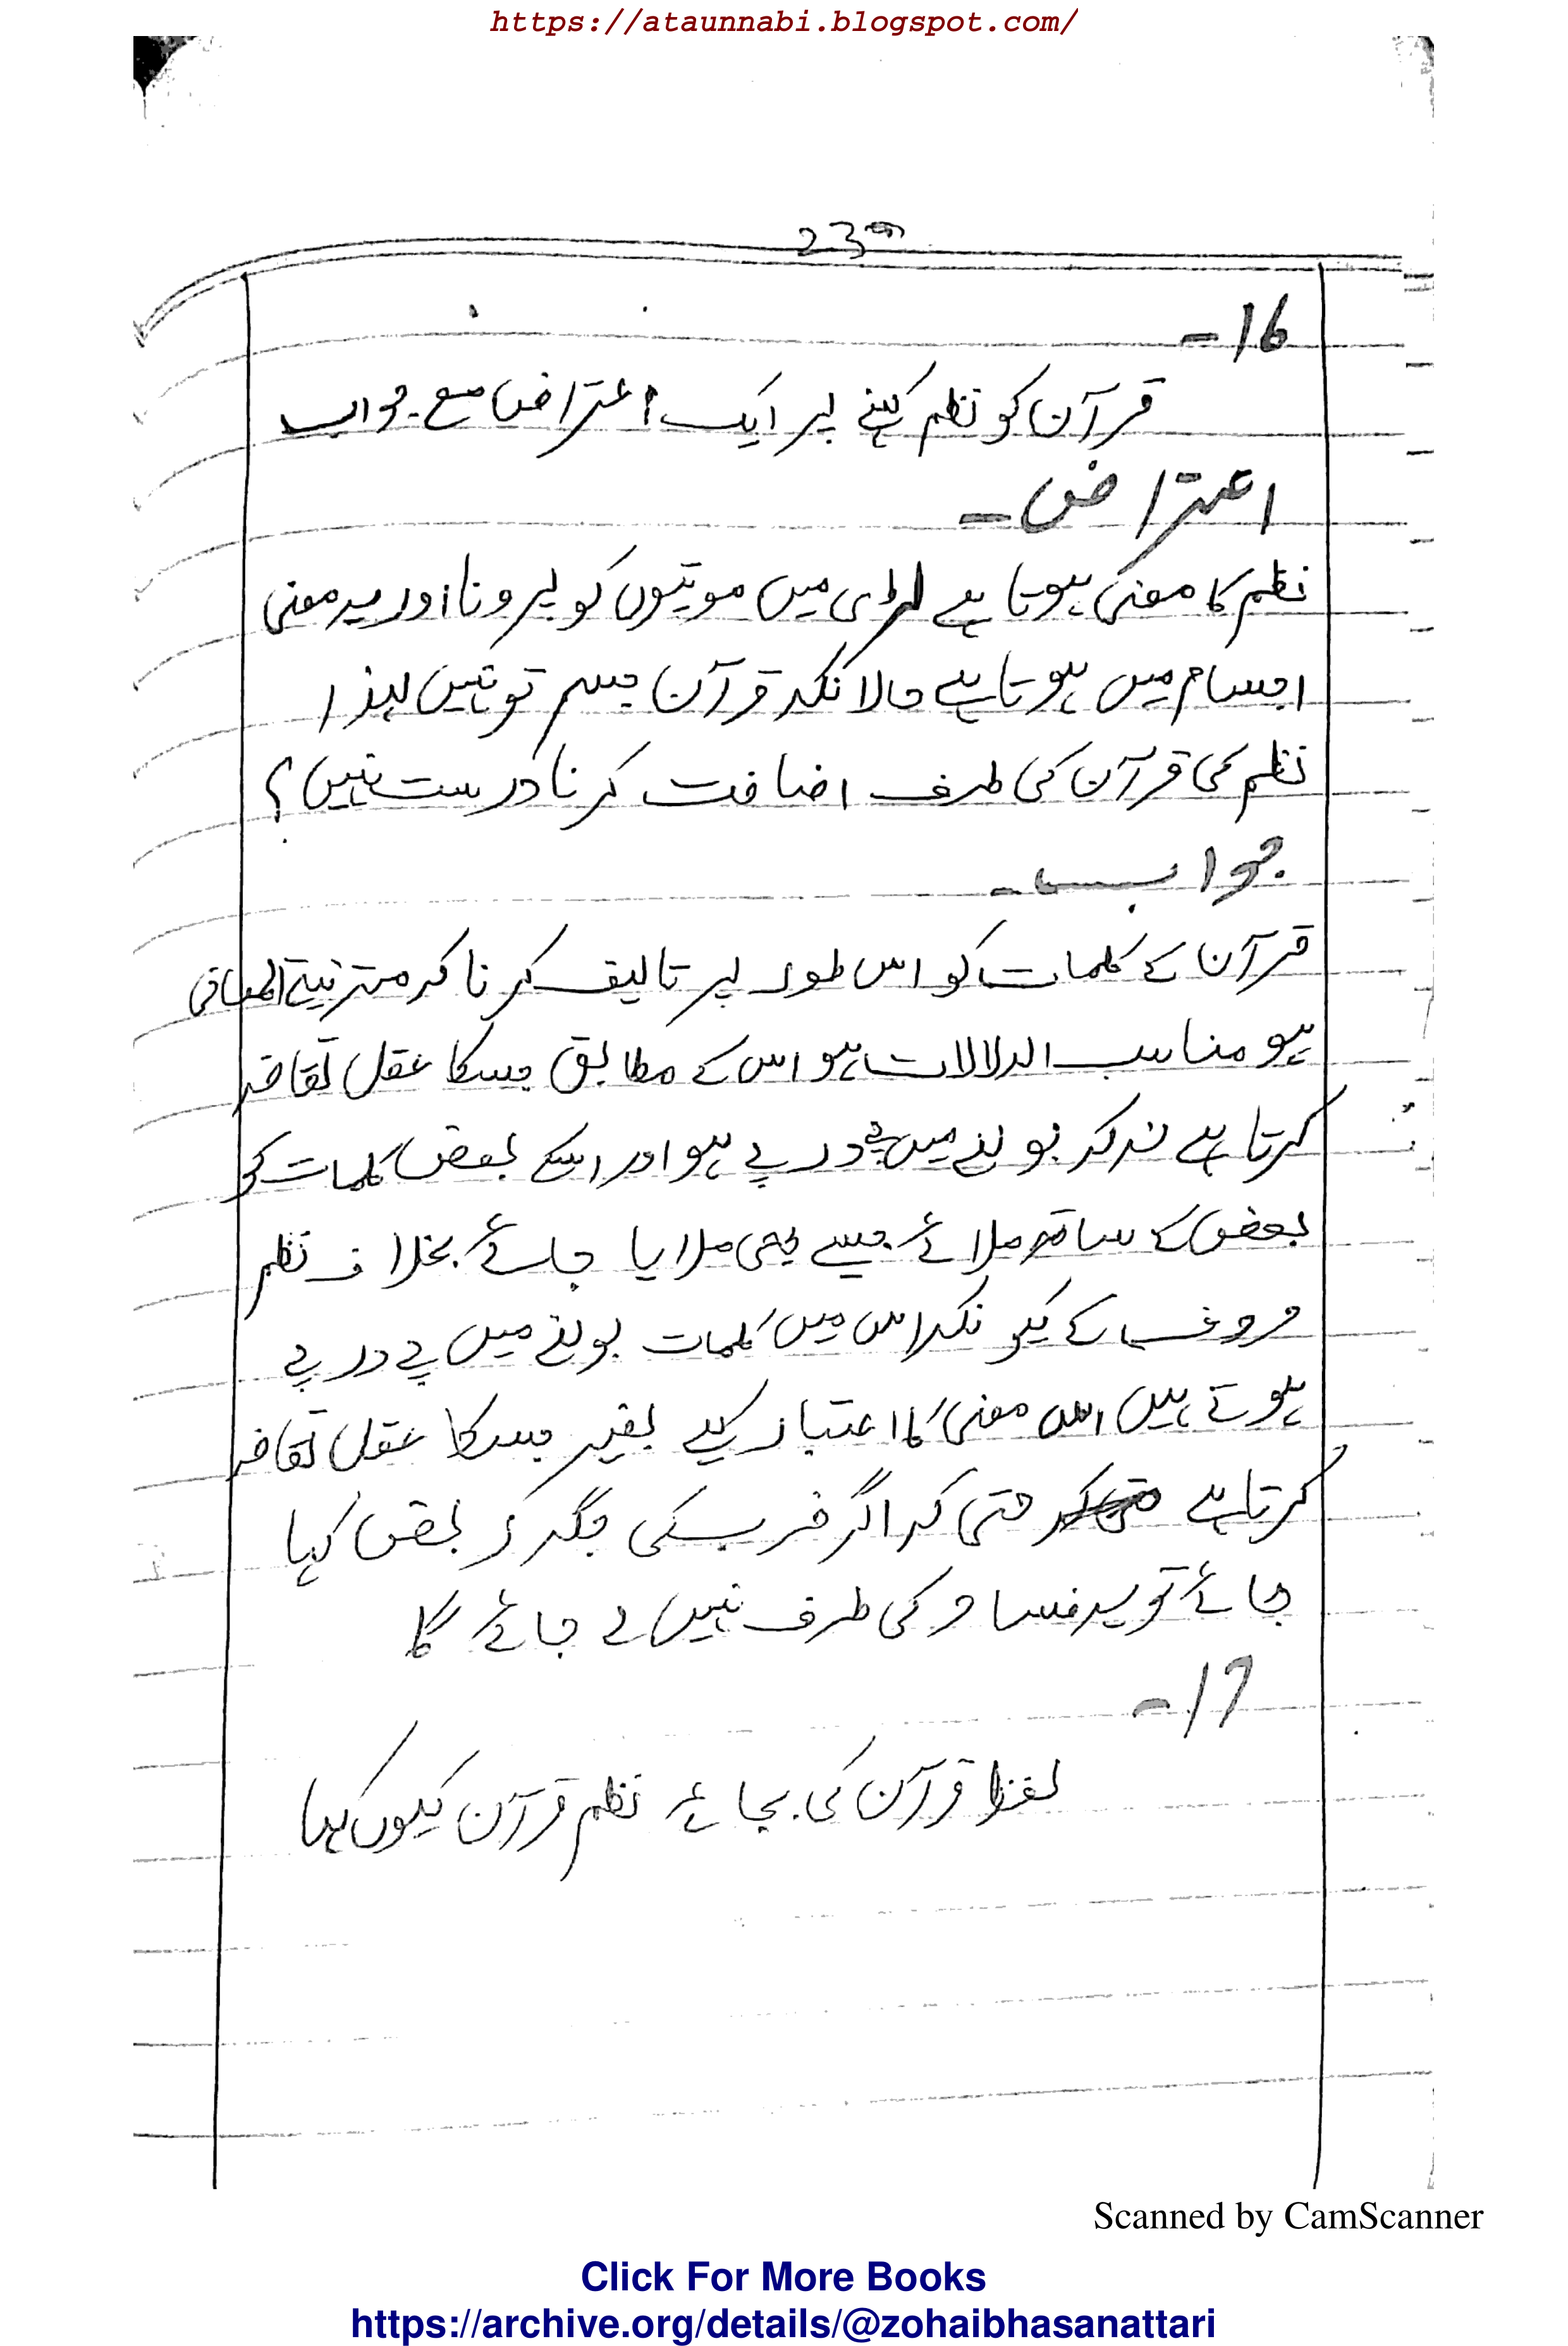 https://ataunnabi.blogspot.com/
23
16-
قرآن کو نظم کہنے پر ایک اعتراض مع جواب
اعتراض-
نظم کا معنی ہوتا ہے لڑی میں موتیوں کو پرونا اور یہ معنی
اجسام میں ہوتا ہے حالانکہ قرآن جسم تو نہیں لہذا
نظم کی قرآن کی طرف اضافت کرنا درست نہیں؟
جواب-
قرآن کے کلمات کو اس طور پر تالیف کرنا کہ مترتبۃ المعانی
ہو مناسب الدلالات ہو اس کے مطابق جسکا عقل تقاضہ
کرتا ہے نہ کہ بولنے میں پے در پے ہو اور اسکے بعض کلمات کو
بعض کے ساتھ ملائے جیسے بھی ملایا جائے بخلاف نظم
حروف کے کیونکہ اس میں کلمات بولنے میں پے در پے
ہوتے ہیں اس معنی کا اعتبار کیے بغیر جسکا عقل تقاضہ
کرتا ہے حتی کہ اگر ضرب کی جگہ ربض کہا
جائے تو یہ فساد کی طرف نہیں لے جائے گا
17-
لفظ قرآن کی بجائے نظم قرآن کیوں کہا
Scanned by CamScanner
Click For More Books
https://archive.org/details/@zohaibhasanattari